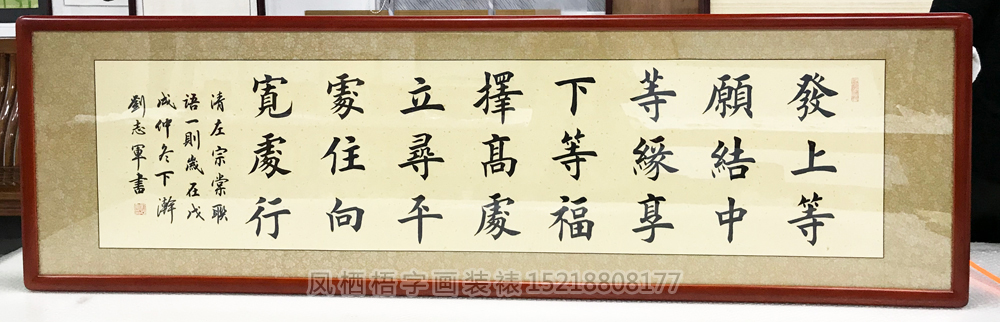 發上等
願結中
等緣享
下等福
擇高處
立尋平
處住向
寬處行
清左宗棠聯
语一則歲在戊
戌仲冬下澣
劉志軍書
凤栖梧字画装裱15218808177